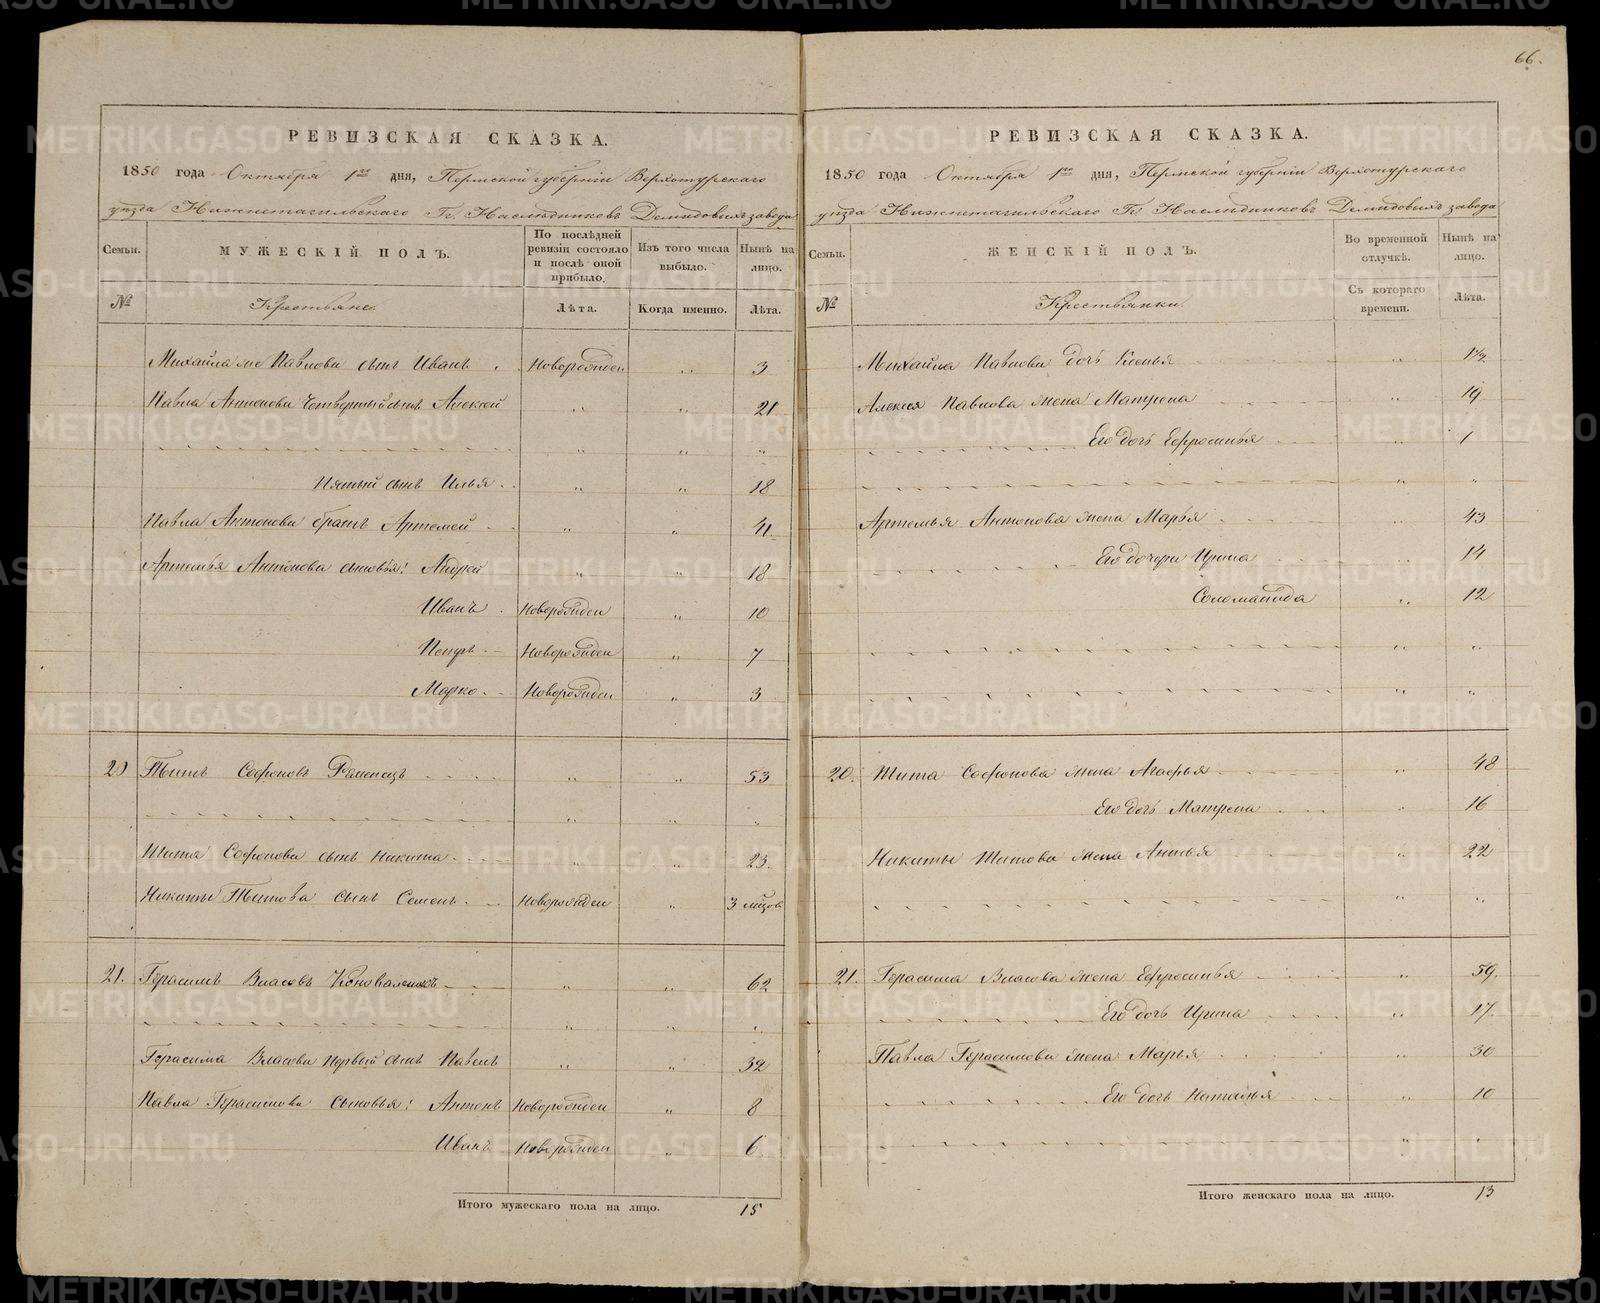 66.
РЕВИЗСКАЯ СКАЗКА.
1850 года Октября 1го дня, Пермской губернии Верхотурскаго
уѣзда Нижнетагильскаго Гг. Наслѣдниковъ Демидовыхъ завода
Семьи.
МУЖЕСКІЙ ПОЛЪ.
По послѣдней ревизіи состояло и послѣ оной прибыло.
Изъ того числа выбыло.
Нынѣ на лицо.
№
Крестьяне
Лѣта.
Когда именно.
Лѣта.
Михайла Павлова сынъ Иванъ Новорожден " 3
Павла Антонова четвертый сынъ Алексей " " 21
" " "
Пятый сынъ Илья " " 18
Павла Антонова братъ Артемей " " 41.
Артемья Антонова сыновья: Андрей " " 18
Иванъ Новорожден " 10
Петръ Новорожден " 7
Марко Новорожден " 3
20 Титъ Софроновъ " " 53
" " "
Тита Софронова сынъ Никита " " 23.
Никиты Титова сынъ Семенъ Новорожден " 3
21. Герасимъ Власовъ " " 62
" " "
Герасима Власова первый сынъ Павелъ " " 32
Павла Герасимова сыновья: Антонъ Новорожден " 8
Иванъ Новорожден " 6
Итого мужескаго пола на лицо. 15
РЕВИЗСКАЯ СКАЗКА.
1850 года Октября 1го дня, Пермской губерніи Верхотурскаго
уѣзда Нижнетагильскаго Гг. Наслѣдниковъ Демидовыхъ завода
Семьи.
ЖЕНСКІЙ ПОЛЪ.
Во временной отлучкѣ.
Нынѣ на лицо.
№
Крестьянки
Съ котораго времени.
Лѣта.
Михайла Павлова дочь Ксенья "
Алексея Павлова жена Матрена " 19
Его дочь Ефросинья " 1
" "
Артемья Антонова жена Марья " 43
Его дочери Ирина " 14
Соломанида " 12
" "
" "
20. Тита Софронова жена Агафья " 48
Его дочь Матрена " 16
Никиты Титова жена " 22
" "
21. Герасима Власова жена Ефросинья " 59.
Его дочь Ирина " 17.
Павла Герасимова жена Марья " 30
Его дочь Наталья " 10
" "
Итого женскаго пола на лицо. 13
METRIKI.GASO-URAL.RU